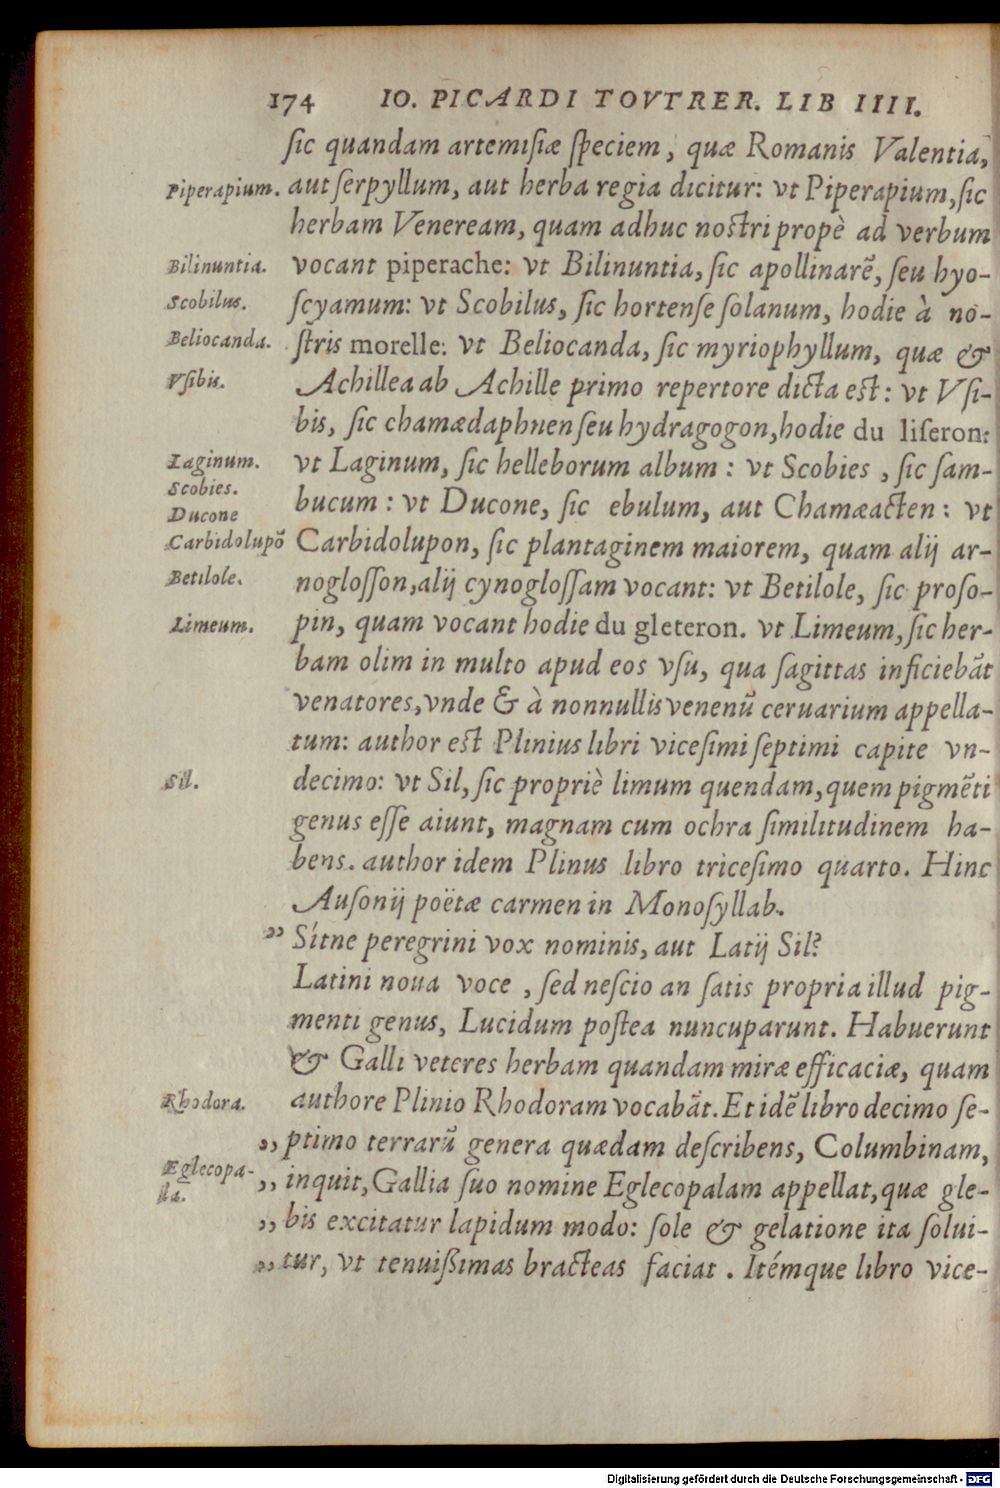 174 IO. PICARDI TOVTRER. LIB IIII.
sic quandam artemisiæ speciem, quæ Romanis Valentia,
Piperapium. aut serpyllum, aut herba regia dicitur: vt Piperapium, sic
herbam Veneream, quam adhuc nostri propè ad verbum
Bilinuntia. vocant piperache: vt Bilinuntia, sic apollinarē, seu hyo-
Scobilus. scyamum: vt Scobilus, sic hortense solanum, hodie à no-
Beliocanda. stris morelle: vt Beliocanda, sic myriophyllum, quæ &
Vsibis. Achillea ab Achille primo repertore dicta est: vt Vsi-
bis, sic chamædaphnen seu hydragogon, hodie du liseron:
Laginum. vt Laginum, sic helleborum album: vt Scobies, sic sam-
Scobies.
Ducone bucum: vt Ducone, sic ebulum, aut Chamæacten: vt
Carbidolupō Carbidolupon, sic plantaginem maiorem, quam alij ar-
Betilole. noglosson, alij cynoglossam vocant: vt Betilole, sic proso-
Limeum. pin, quam vocant hodie du gleteron. vt Limeum, sic her-
bam olim in multo apud eos vsu, qua sagittas inficiebāt
venatores, vnde & à nonnullis venenū ceruarium appella-
tum: author est Plinius libri vicesimi septimi capite vn-
Sil. decimo: vt Sil, sic propriè limum quendam, quem pigmēti
genus esse aiunt, magnam cum ochra similitudinem ha-
bens. author idem Plinus libro tricesimo quarto. Hinc
Ausonij poëtæ carmen in Monosyllab.
" Sítne peregrini vox nominis, aut Latij Sil?
Latini noua voce, sed nescio an satis propria illud pig-
menti genus, Lucidum postea nuncuparunt. Habuerunt
& Galli veteres herbam quandam miræ efficaciæ, quam
Rhodora. authore Plinio Rhodoram vocabāt. Et idē libro decimo se-
,, ptimo terrarū genera quædam describens, Columbinam,
Eglecopa-
la. ,, inquit, Gallia suo nomine Eglecopalam appellat, quæ gle-
,, bis excitatur lapidum modo: sole & gelatione ita solui-
,, tur, vt tenuissimas bracteas faciat. Itémque libro vice-
Digitalisierung gefördert durch die Deutsche Forschungsgemeinschaft - DFG